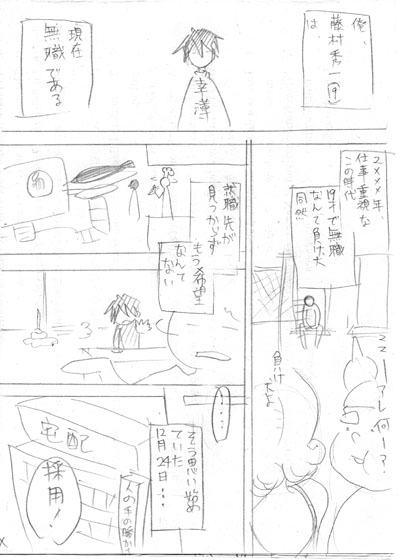 俺、
藤村秀一(19)
は、
現在
無職である
幸薄
2×××年、
仕事重視な
この時代
19才で無職
なんて負け犬
同然
ママーアレ何ー?
負け
犬よ
就職先が
見つからず
もう希望
なんて
ない
・・・・
そう思い始め
ていた
12月24日・・・
宅配
採用!